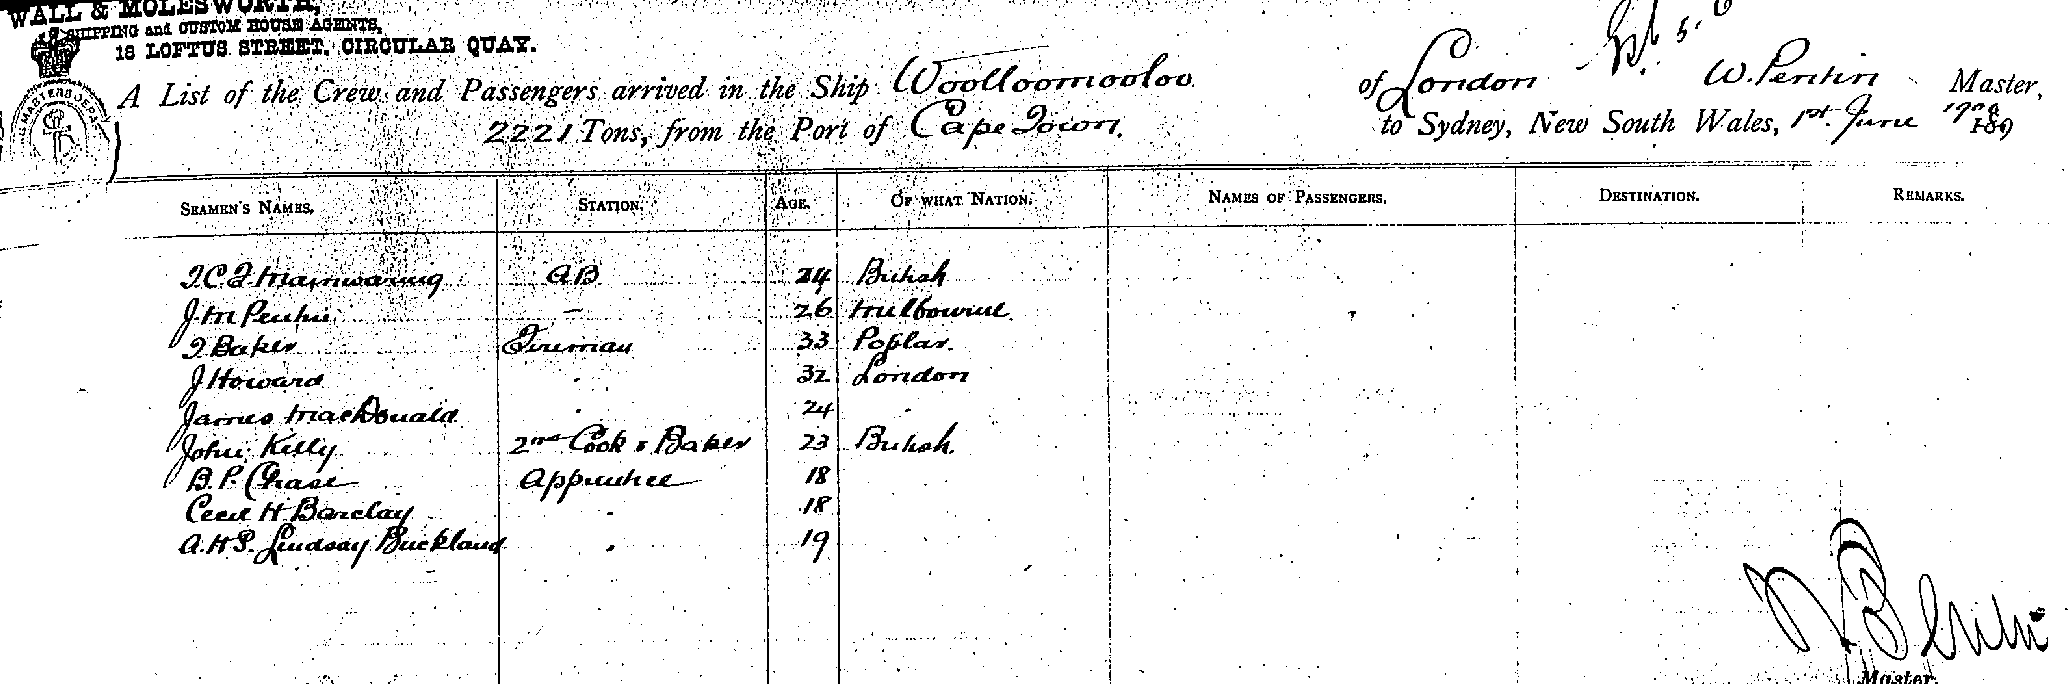 WALL & MOLESWORTH,
SHIPPING and CUSTOM HOUSE AGENTS,
18 LOFTUS STREET, CIRCULAR QUAY.
A List of the Crew and Passengers arrived in the Ship Woolloomooloo of London W. Pentin Master,
2221 Tons, from the Port of Cape Town. to Sydney, New South Wales, 1st June 189
SEAMEN'S NAMES. STATION. AGE. OF WHAT NATION. NAMES OF PASSENGERS. DESTINATION. REMARKS.
Mainwaring AB 24 British
J. M Pentin 26 Melbourne
Baker Fireman 33 Poplar.
J Howard 32 London
James MacDonald 24
John Kelly 2nd Cook & Baker 23 British.
B. P. Chase Apprentice 18
Cecil H Barclay 18
Lindsay Buckland 19
Master.